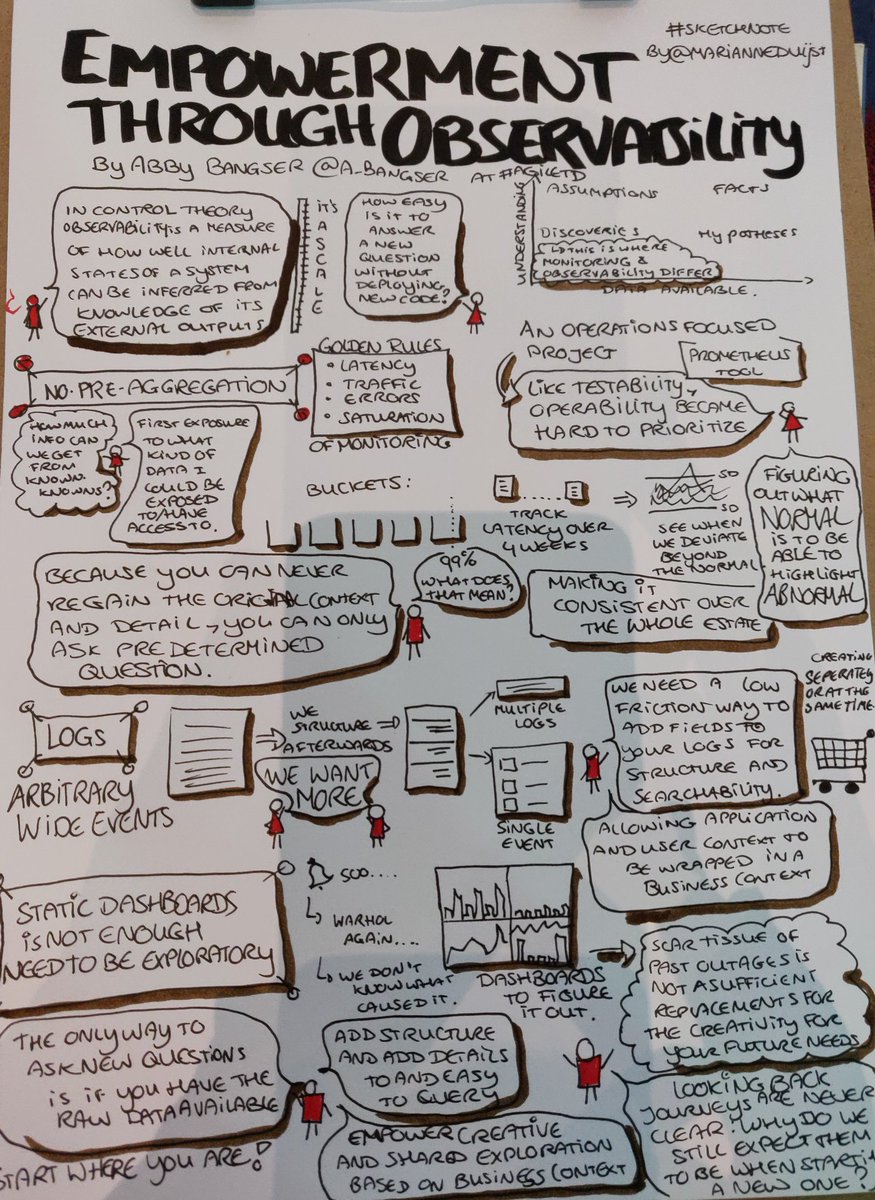 #SKETCHNOTE
BY @MARIANNEDUIJST
EMPOWERMENT
THROUGH OBSERVABILITY
BY ABBY BANGSER @A_BANGSER AT #AGILETD
IN CONTROL THEORY
OBSERVABILITY IS A MEASURE
OF HOW WELL INTERNAL
STATES OF A SYSTEM
CAN BE INFERRED FROM
KNOWLEDGE OF ITS
EXTERNAL OUTPUTS
IT'S
A
SCALE
HOW EASY
IS IT TO
ANSWER
A NEW
QUESTION
WITHOUT
DEPLOYING
NEW CODE?
UNDERSTANDING
ASSUMPTIONS FACTS
DISCOVERIES HYPOTHESES
↳ THIS IS WHERE
MONITORING &
OBSERVABILITY DIFFER
DATA AVAILABLE.
NO PRE-AGGREGATION
GOLDEN RULES
• LATENCY
• TRAFFIC
• ERRORS
• SATURATION
OF MONITORING
AN OPERATIONS FOCUSED
PROJECT
PROMETHEUS
TOOL
LIKE TESTABILITY,
OPERABILITY BECAME
HARD TO PRIORITIZE
HOW MUCH
INFO CAN
WE GET
FROM
KNOWN
KNOWNS?
FIRST EXPOSURE
TO WHAT
KIND OF
DATA I
COULD BE
EXPOSED
TO/HAVE
ACCESS TO.
BUCKETS:
99%
WHAT DOES
THAT MEAN?
TRACK
LATENCY OVER
4 WEEKS
SO
SO
SEE WHEN
WE DEVIATE
BEYOND
THE NORMAL
FIGURING
OUT WHAT
NORMAL
IS TO BE
ABLE TO
HIGHLIGHT
ABNORMAL
BECAUSE YOU CAN NEVER
REGAIN THE ORIGINAL CONTEXT
AND DETAIL, YOU CAN ONLY
ASK PREDETERMINED
QUESTION.
MAKING IT
CONSISTENT OVER
THE WHOLE ESTATE
LOGS
ARBITRARY
WIDE EVENTS
WE
STRUCTURE
AFTERWARDS
WE WANT
MORE
MULTIPLE
LOGS
SINGLE
EVENT
WE NEED A LOW
FRICTION WAY TO
ADD FIELDS TO
YOUR LOGS FOR
STRUCTURE AND
SEARCHABILITY.
CREATING
SEPERATELY
OR AT THE
SAME TIME.
ALLOWING APPLICATION
AND USER CONTEXT TO
BE WRAPPED IN A
BUSINESS CONTEXT
STATIC DASHBOARDS
IS NOT ENOUGH
NEED TO BE EXPLORATORY
SOO....
↳ WARHOL
AGAIN....
↳ WE DON'T
KNOW WHAT
CAUSED IT.
DASHBOARDS
TO FIGURE
IT OUT.
SCAR TISSUE OF
PAST OUTAGES IS
NOT A SUFFICIENT
REPLACEMENTS FOR
THE CREATIVITY FOR
YOUR FUTURE NEEDS
THE ONLY WAY TO
ASK NEW QUESTIONS
IS IF YOU HAVE THE
RAW DATA AVAILABLE
START WHERE YOU ARE!
ADD STRUCTURE
AND ADD DETAILS
TO AND EASY
TO QUERY
EMPOWER CREATIVE
AND SHARED EXPLORATION
BASED ON BUSINESS CONTEXT
LOOKING BACK
JOURNEYS ARE NEVER
CLEAR. WHY DO WE
STILL EXPECT THEM
TO BE WHEN STARTING
A NEW ONE?